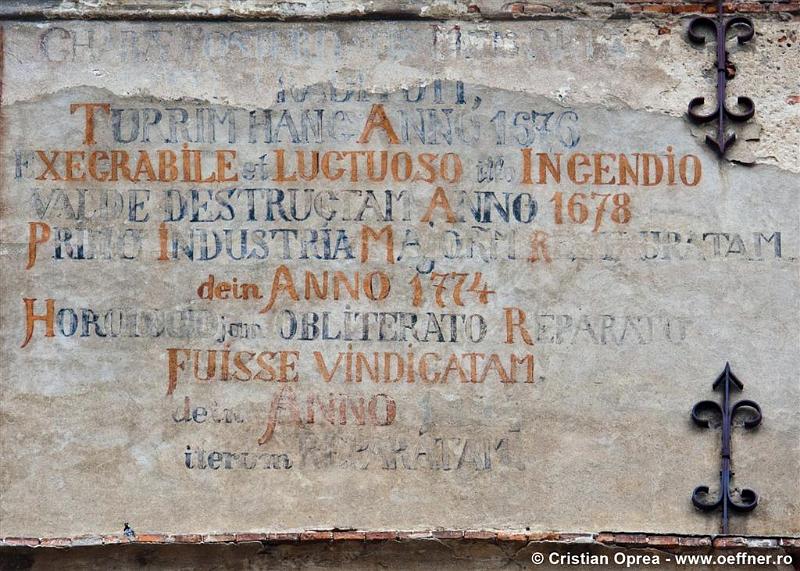 CHARÆ POSTERO
TUPRIM HANC ANNO 1676
EXECRABILE et LUCTUOSO illo INCENDIO
VALDE DESTRUCTAM ANNO 1678
PRIMO INDUSTRIA MAJORM RESTAURATAM
dein ANNO 1774
HOROLOGIO jam OBLITERATO REPARATO
FUISSE VINDICATAM
dein ANNO
iterum REPARATAM
© Cristian Oprea - www.oeffner.ro